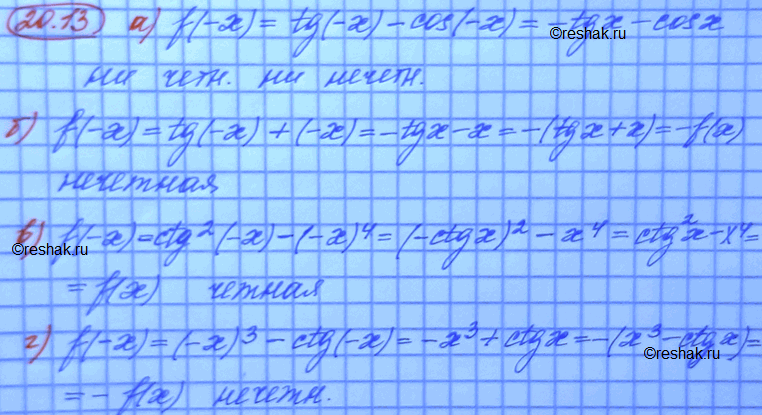 20.13 а) f(-x) = tg(-x) - cos(-x) = -tgx - cosx
©reshak.ru
ни четн. ни нечетн.
©reshak.ru
б) f(-x) = tg(-x) + (-x) = -tgx - x = -(tgx + x) = -f(x)
нечетная
в) f(-x) = ctg²(-x) - (-x)⁴ = (-ctgx)² - x⁴ = ctg²x - x⁴ =
©reshak.ru ©reshak.ru
= f(x) четная
г) f(-x) = (-x)³ - ctg(-x) = -x³ + ctgx = -(x³ - ctgx) =
©reshak.ru
= - f(x) нечетн.
©reshak.ru